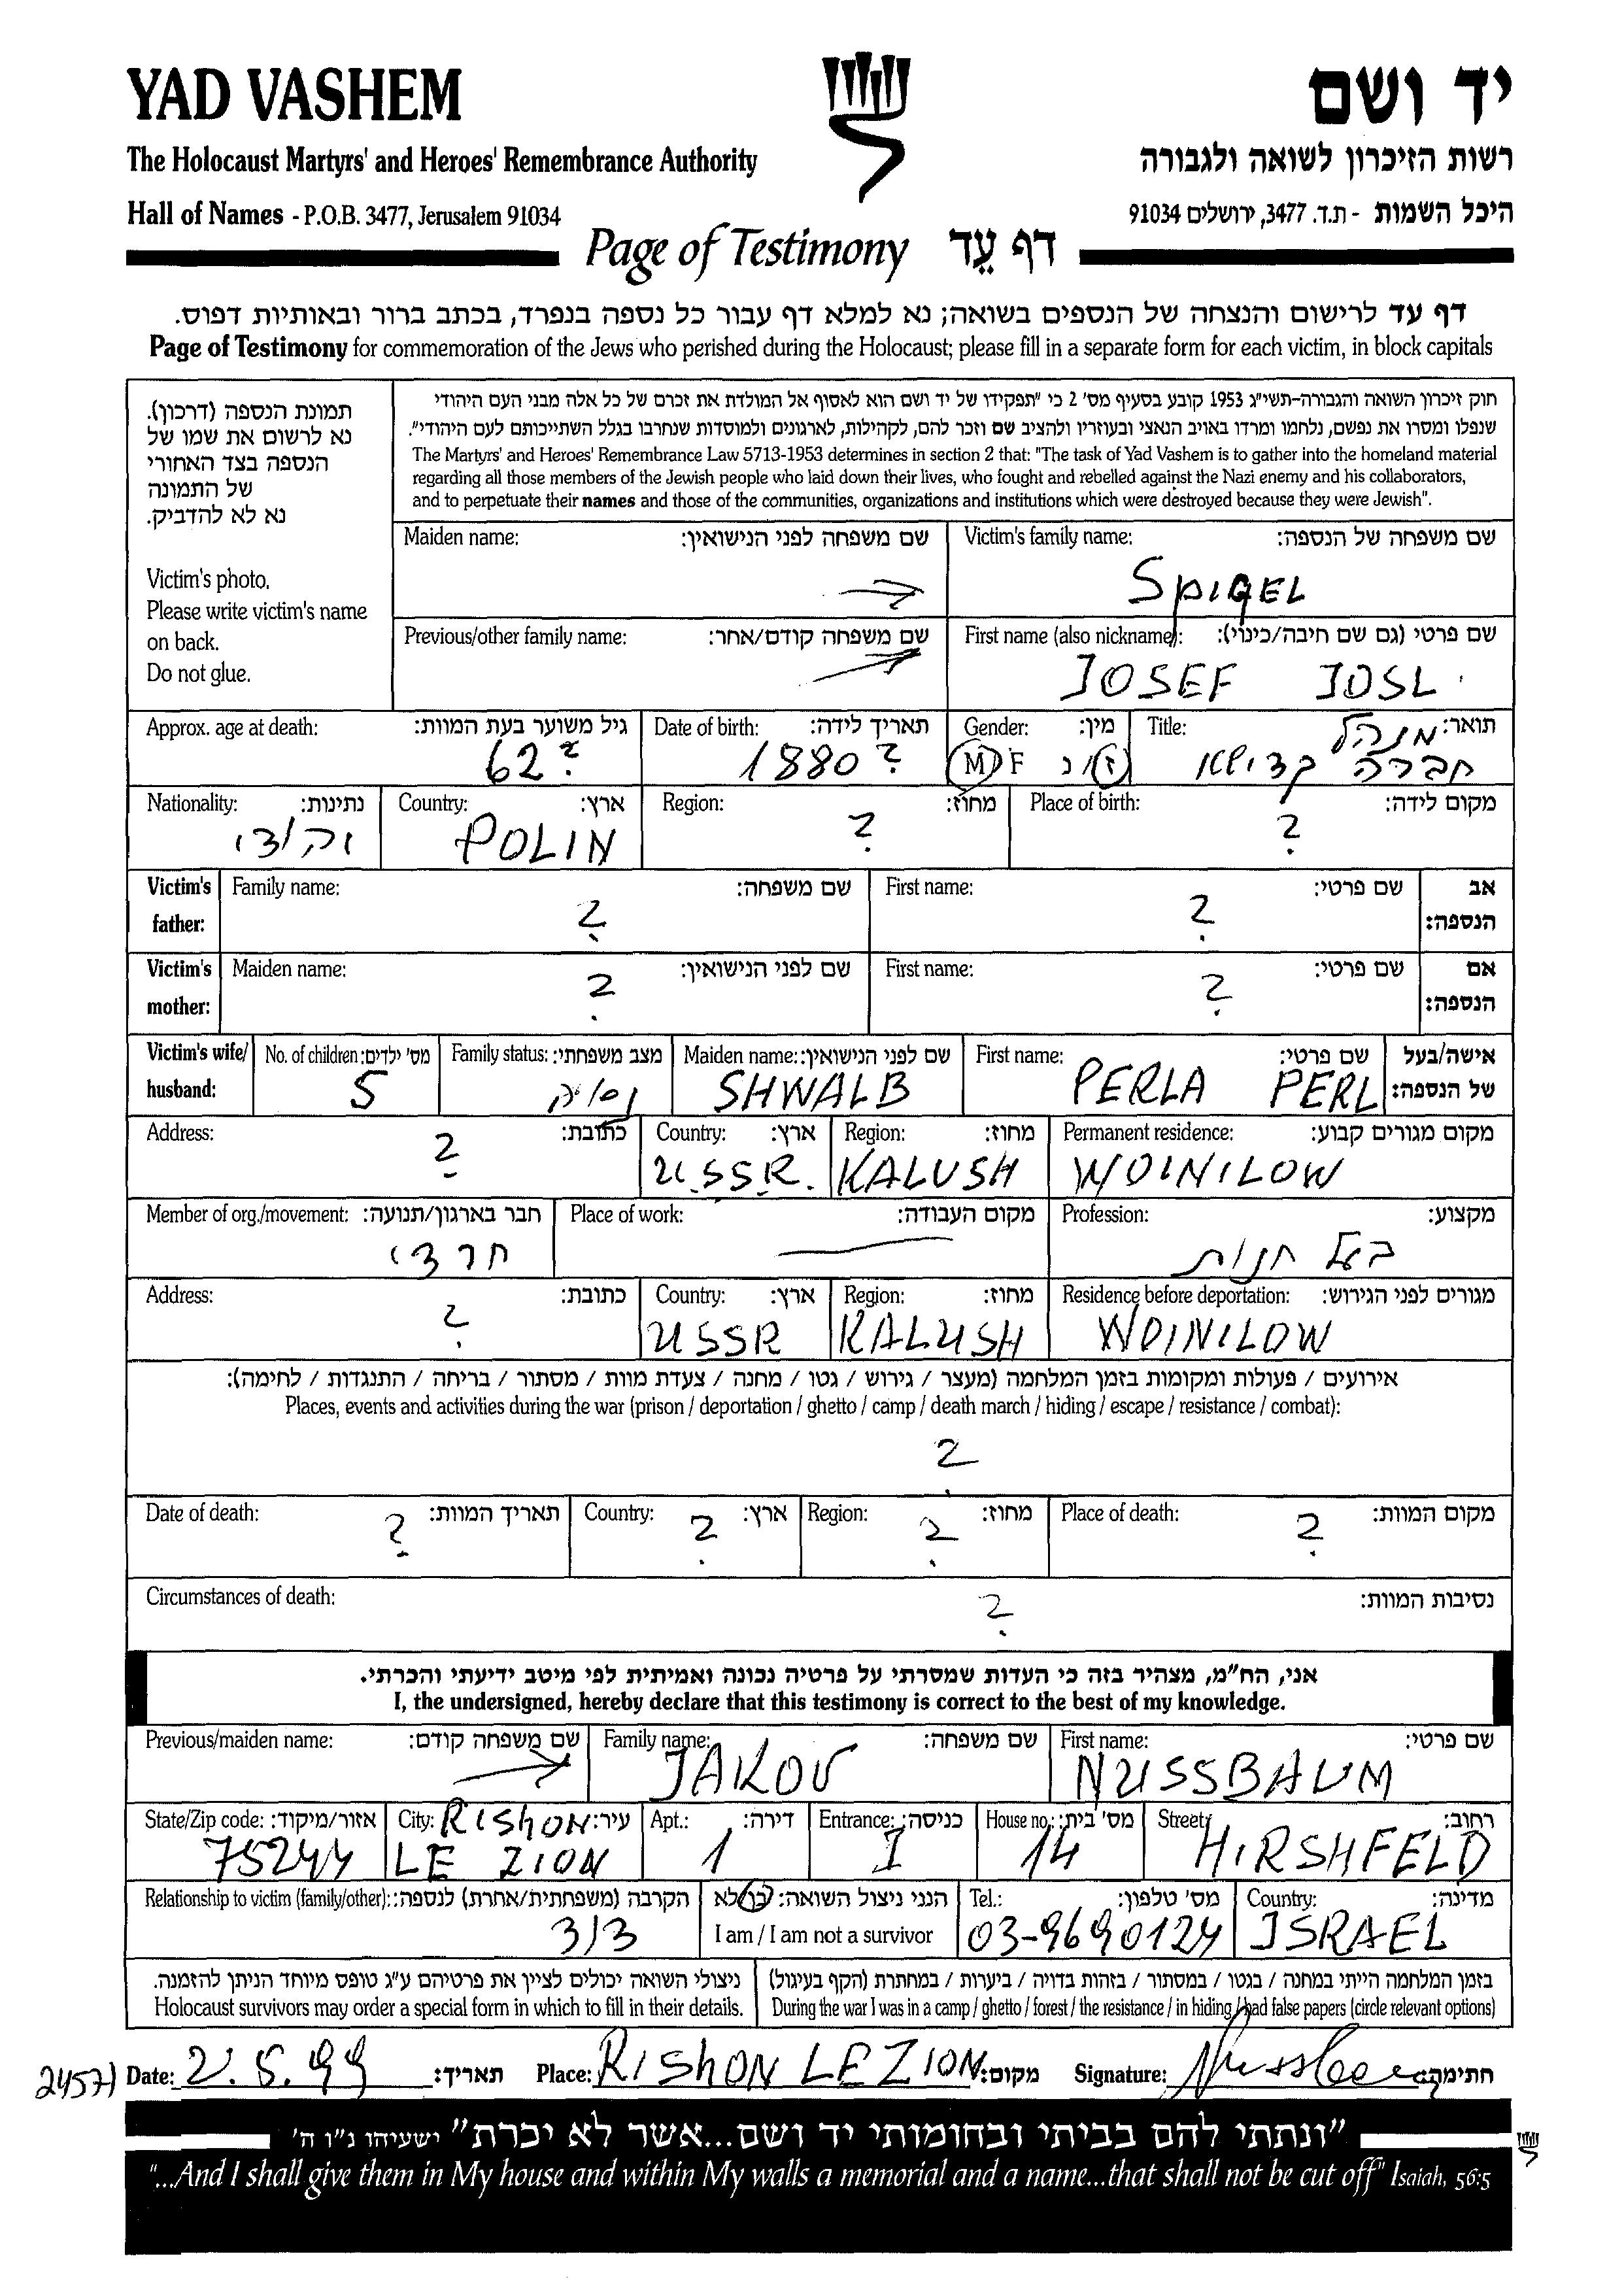 YAD VASHEM
יד ושם
The Holocaust Martyrs' and Heroes' Remembrance Authority
רשות הזיכרון לשואה ולגבורה
Hall of Names - P.O.B. 3477, Jerusalem 91034
היכל השמות - ת.ד. 3477, ירושלים 91034
Page of Testimony דף עֵד
דף עד לרישום והנצחה של הנספים בשואה; נא למלא דף עבור כל נספה בנפרד, בכתב ברור ובאותיות דפוס.
Page of Testimony for commemoration of the Jews who perished during the Holocaust; please fill in a separate form for each victim, in block capitals
תמונת הנספה (דרכון).
נא לרשום את שמו של
הנספה בצד האחורי
של התמונה
נא לא להדביק.
Victim's photo.
Please write victim's name
on back.
Do not glue.
חוק זיכרון השואה והגבורה-תשי"ג 1953 קובע בסעיף מס' 2 כי "תפקידו של יד ושם הוא לאסוף אל המולדת את זכרם של כל אלה מבני העם היהודי
שנפלו ומסרו את נפשם, נלחמו ומרדו באויב הנאצי ובעוזריו ולהציב שם וזכר להם, לקהילות, לארגונים ולמוסדות שנחרבו בגלל השתייכותם לעם היהודי".
The Martyrs' and Heroes' Remembrance Law 5713-1953 determines in section 2 that: "The task of Yad Vashem is to gather into the homeland material
regarding all those members of the Jewish people who laid down their lives, who fought and rebelled against the Nazi enemy and his collaborators,
and to perpetuate their names and those of the communities, organizations and institutions which were destroyed because they were Jewish".
Maiden name: שם משפחה לפני הנישואין:
Victim's family name: שם משפחה של הנספה:
SPIGEL
Previous/other family name: שם משפחה קודם/אחר:
First name (also nickname): שם פרטי (גם שם חיבה/כינוי):
JOSEF JOSL
Approx. age at death: גיל משוער בעת המוות:
62?
Date of birth: תאריך לידה:
1880?
Gender: מין:
M F ז/נ
Title: תואר:
מנהל
חברה קדישא
Nationality: נתינות:
Country: ארץ:
POLIN
Region: מחוז:
?
Place of birth: מקום לידה:
?
Victim's father:
Family name: שם משפחה:
?
First name: שם פרטי:
?
אב הנספה:
Victim's mother:
Maiden name: שם לפני הנישואין:
?
First name: שם פרטי:
?
אם הנספה:
Victim's wife/ husband:
No. of children: מס' ילדים:
5
Family status: מצב משפחתי:
נשוי
Maiden name: שם לפני הנישואין:
SHWALB
First name: שם פרטי:
PERLA PERL
אישה/בעל של הנספה:
Address: כתובת:
?
Country: ארץ:
U.S.S.R.
Region: מחוז:
KALUSH
Permanent residence: מקום מגורים קבוע:
WOINILOW
Member of org./movement: חבר בארגון/תנועה:
חרדי
Place of work: מקום העבודה:
Profession: מקצוע:
בעל חנות
Address: כתובת:
?
Country: ארץ:
USSR
Region: מחוז:
KALUSH
Residence before deportation: מגורים לפני הגירוש:
WOINILOW
אירועים / פעולות ומקומות בזמן המלחמה (מעצר / גירוש / גטו / מחנה / צעדת מוות / מסתור / בריחה / התנגדות / לחימה):
Places, events and activities during the war (prison / deportation / ghetto / camp / death march / hiding / escape / resistance / combat):
?
Date of death: תאריך המוות:
?
Country: ארץ:
?
Region: מחוז:
?
Place of death: מקום המוות:
?
Circumstances of death: נסיבות המוות:
?
אני, הח"מ, מצהיר בזה כי העדות שמסרתי על פרטיה נכונה ואמיתית לפי מיטב ידיעתי והכרתי.
I, the undersigned, hereby declare that this testimony is correct to the best of my knowledge.
Previous/maiden name: שם משפחה קודם:
Family name: שם משפחה:
JAKOV
First name: שם פרטי:
NUSSBAUM
State/Zip code: אזור/מיקוד:
75244
City: עיר:
RISHON
LE ZION
Apt.: דירה:
1
Entrance: כניסה:
I
House no.: מס' בית:
14
Street: רחוב:
HIRSHFELD
Relationship to victim (family/other): הקרבה (משפחתית/אחרת) לנספה:
נכד
הנני ניצול השואה: כן/לא
I am / I am not a survivor
Tel.: מס' טלפון:
03-9690124
Country: מדינה:
ISRAEL
ניצולי השואה יכולים לציין את פרטיהם ע"ג טופס מיוחד הניתן להזמנה.
Holocaust survivors may order a special form in which to fill in their details.
בזמן המלחמה הייתי במחנה / בגטו / במסתור / בזהות בדויה / ביערות / במחתרת (הקף בעיגול)
During the war I was in a camp / ghetto / forest / the resistance / in hiding / had false papers (circle relevant options)
24571 Date: 2.5.99 תאריך: Place: RISHON LE ZION מקום: Signature: חתימה:
"ונתתי להם בביתי ובחומותי יד ושם...אשר לא יכרת" ישעיהו נ"ו ה'
"...And I shall give them in My house and within My walls a memorial and a name...that shall not be cut off" Isaiah, 56:5